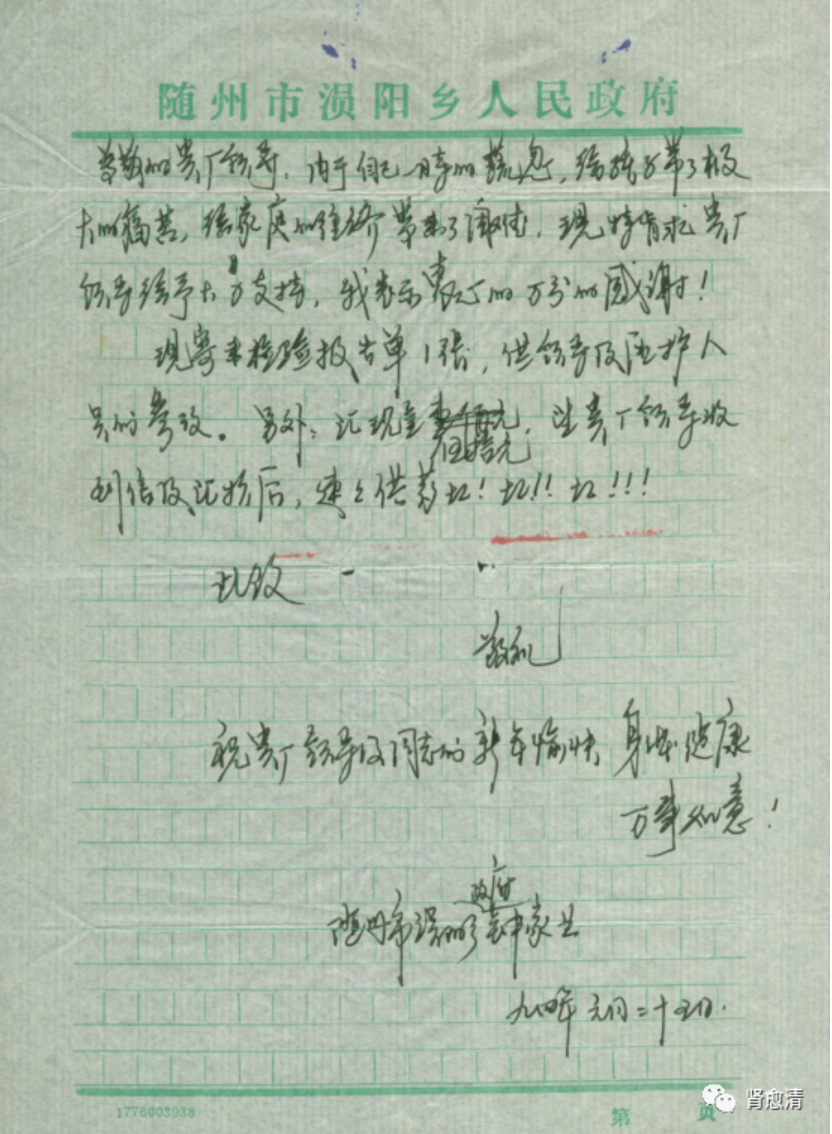 随州市涢阳乡人民政府
尊敬的贵厂领导：由于自己一时的疏忽，给转方带了极
大的痛苦，给家庭的经济带来了，现特请求贵厂
领导给予大力支持，我表示衷心的万分的感谢！
现寄来检验报告单1张，供领导及医护人
员的参改。另外：汇现金，望贵厂领导收
伍拾元
到信及汇款后，速速供药
此致
敬礼
祝贵厂领导及同志的新年愉快 身体健康
万事如意！
政府
随州市涢阳乡家
九四年元月二十五日.
1776003938
第 页
肾愈清